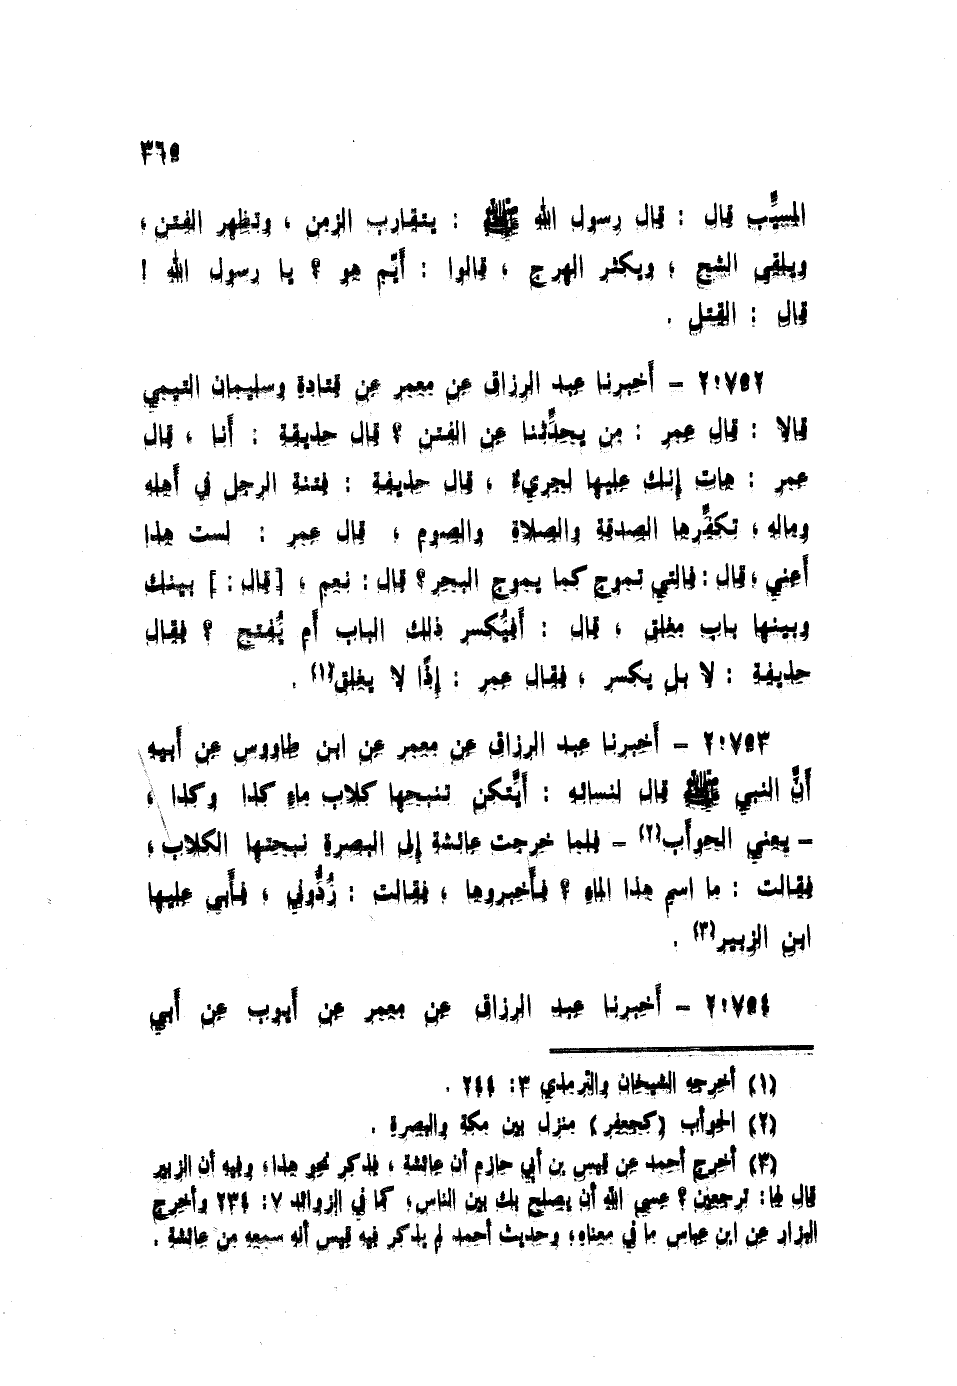 ٣٦٥
المسيِّب قال : قال رسول الله ﷺ : يتقارب الزمن ، وتظهر الفتن ،
ويلقى الشح ، ويكثر الهرج ، قالوا : أَيّم هو ؟ يا رسول الله !
قال : القتل .
٢٠٧٥٢ – أَخبرنا عبد الرزاق عن معمر عن قتادة وسليمان التيمي
قالا : قال عمر : من يحدِّثنا عن الفتن ؟ قال حذيفة : أَنا ، قال
عمر : هات إنك عليها لجريءٌ ، قال حذيفة : فتنة الرجل في أَهله
وماله ، تكفِّرها الصدقة والصلاة والصوم ، قال عمر : لست هذا
أَعني ، قال : فالتي تموج كما يموج البحر ؟ قال : نعم ، [قال : ] بينك
وبينها باب مغلق ، قال : أَفيُكسر ذلك الباب أَم يُفتح ؟ فقال
حذيفة : لا بل يكسر ، فقال عمر : إِذًا لا يغلق(١) .
٢٠٧٥٣ – أَخبرنا عبد الرزاق عن معمر عن ابن طاووس عن أَبيه
أَنَّ النبي ﷺ قال لنسائه : أَيَّتكن تنبحها كلاب ماءِ كذا وكذا ،
– يعني الحوأَب(٢) – فلما خرجت عائشة إلى البصرة نبحتها الكلاب ،
فقالت : ما اسم هذا الماءِ ؟ فأَخبروها ، فقالت : رُدُّوني ، فأَبى عليها
ابن الزبير(٣) .
٢٠٧٥٤ – أَخبرنا عبد الرزاق عن معمر عن أَيوب عن أَبي
(١) أخرجه الشيخان والترمذي ٣: ٢٤٤ .
(٢) الحوأب (كجعفر) منزل بين مكة والبصرة .
(٣) أخرج أحمد عن قيس بن أبي حازم أن عائشة ، فذكر نحو هذا، وفيه أن الزبير
قال لها: ترجعين ؟ عسى الله أن يصلح بك بين الناس، كما في الزوائد ٧: ٢٣٤ وأخرج
البزار عن ابن عباس ما في معناه، وحديث أحمد لم يذكر فيه قيس أنه سمعه من عائشة .